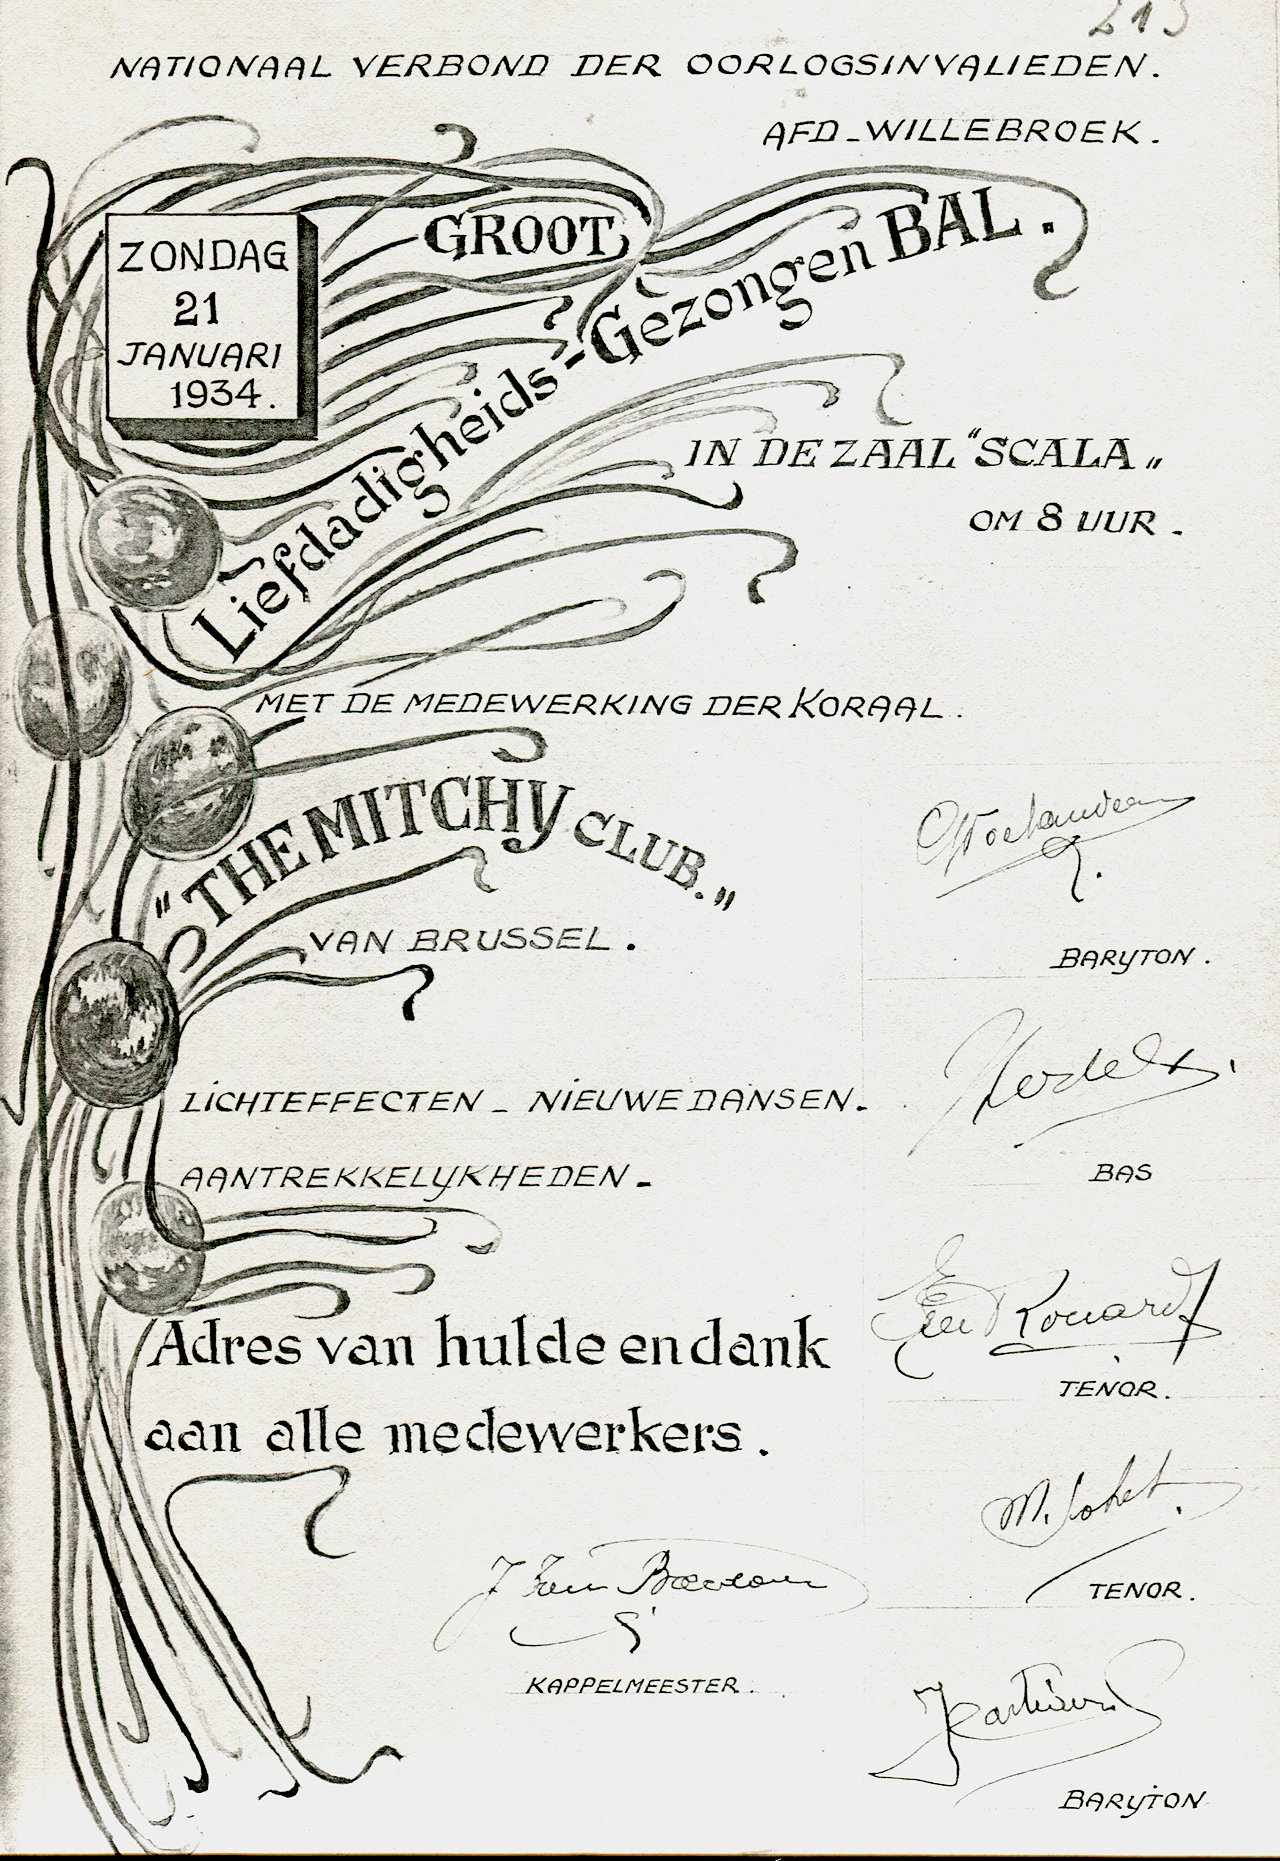 213
NATIONAAL VERBOND DER OORLOGSINVALIEDEN.
AFD_WILLEBROEK.
ZONDAG
21
JANUARI
1934.
GROOT
Liefdadigheids-Gezongen BAL.
IN DE ZAAL "SCALA„
OM 8 UUR.
MET DE MEDEWERKING DER KORAAL.
"THE MITCHY CLUB."
VAN BRUSSEL.
BARYTON.
LICHTEFFECTEN _ NIEUWE DANSEN.
AANTREKKELYKHEDEN._
BAS
Adres van hulde en dank
aan alle medewerkers.
TENOR.
TENOR.
KAPPELMEESTER.
BARYTON